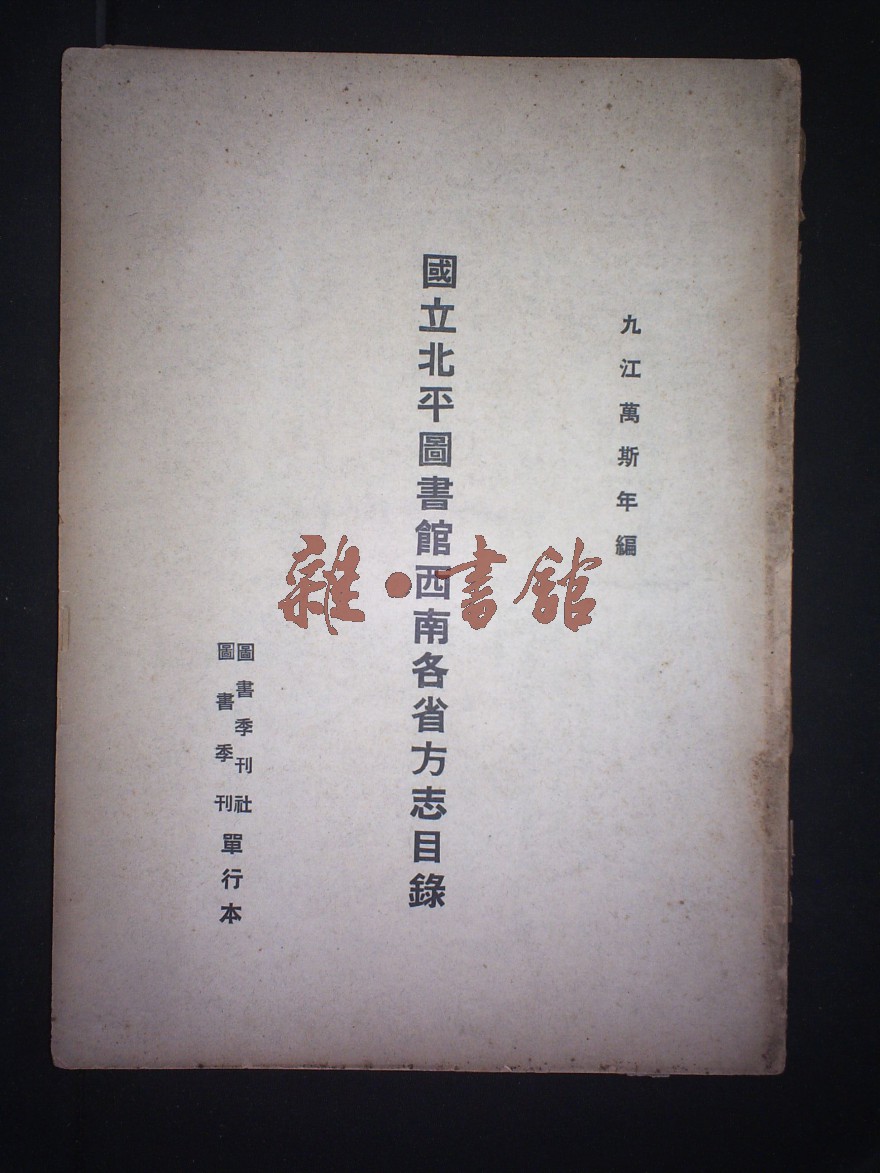 九江萬斯年編
國立北平圖書館西南各省方志目錄
圖書季刊社
圖書季刊
單行本
雜·書館